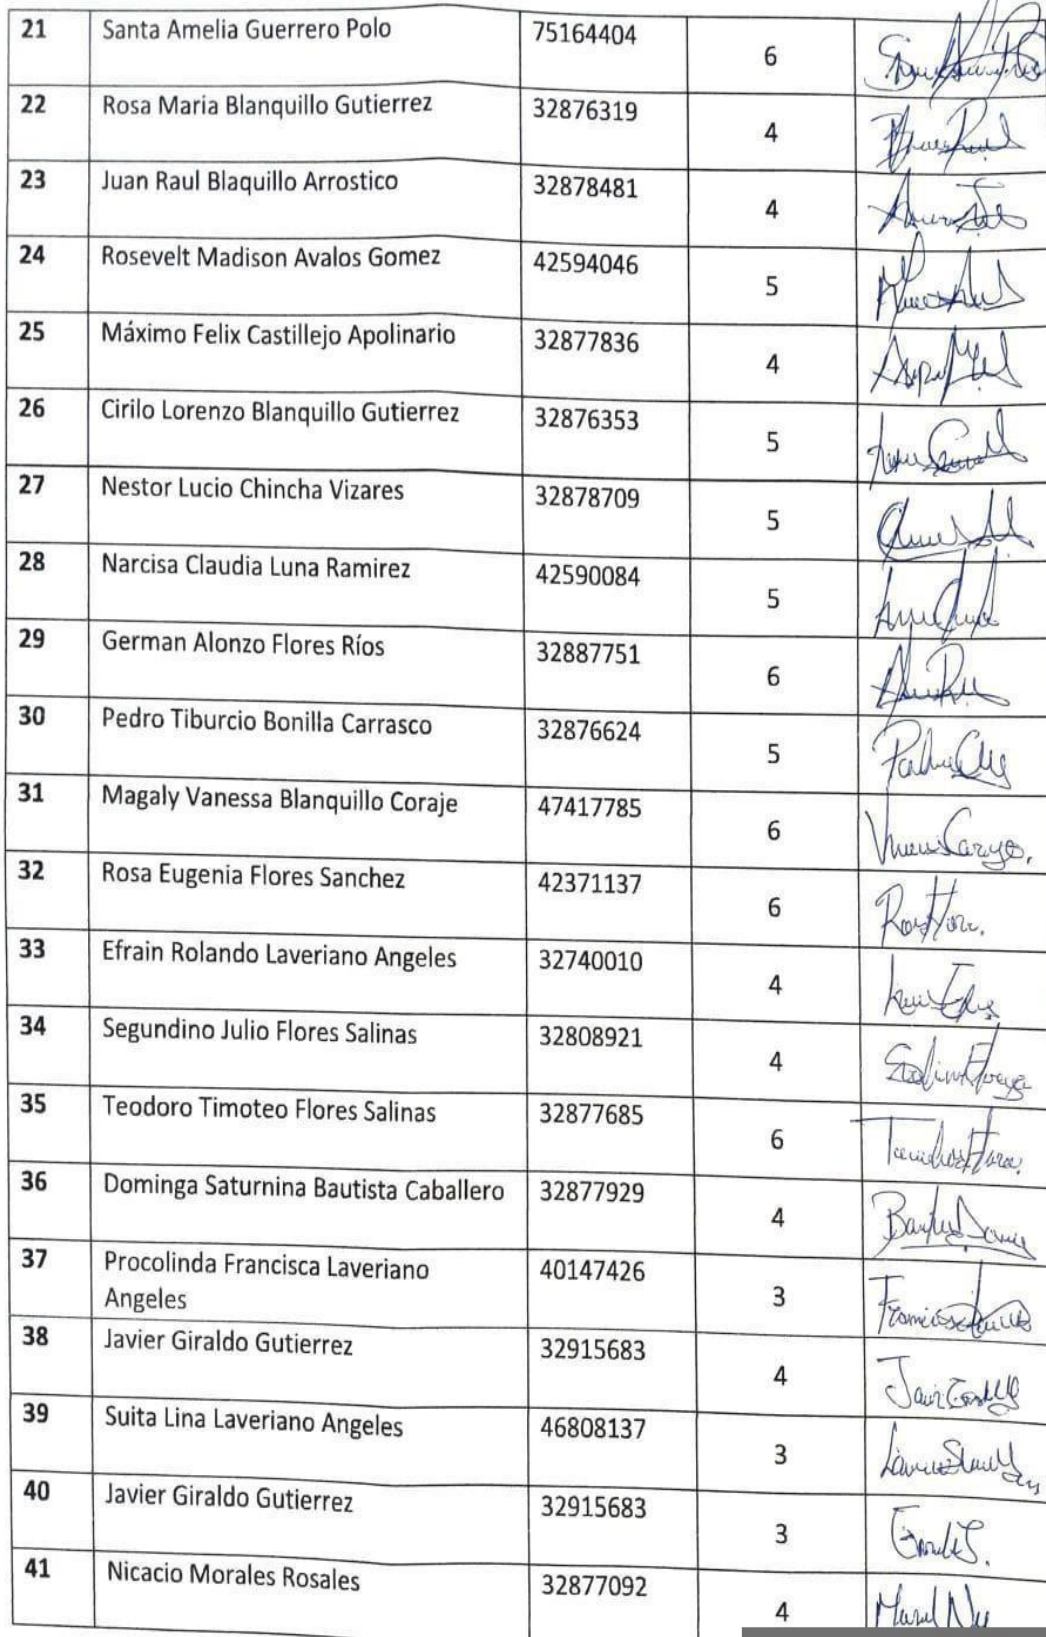 21 Santa Amelia Guerrero Polo 75164404 6
22 Rosa Maria Blanquillo Gutierrez 32876319 4
23 Juan Raul Blaquillo Arrostico 32878481 4
24 Rosevelt Madison Avalos Gomez 42594046 5
25 Máximo Felix Castillejo Apolinario 32877836 4
26 Cirilo Lorenzo Blanquillo Gutierrez 32876353 5
27 Nestor Lucio Chincha Vizares 32878709 5
28 Narcisa Claudia Luna Ramirez 42590084 5
29 German Alonzo Flores Ríos 32887751 6
30 Pedro Tiburcio Bonilla Carrasco 32876624 5
31 Magaly Vanessa Blanquillo Coraje 47417785 6
32 Rosa Eugenia Flores Sanchez 42371137 6
33 Efrain Rolando Laveriano Angeles 32740010 4
34 Segundino Julio Flores Salinas 32808921 4
35 Teodoro Timoteo Flores Salinas 32877685 6
36 Dominga Saturnina Bautista Caballero 32877929 4
37 Procolinda Francisca Laveriano 40147426 3
Angeles
38 Javier Giraldo Gutierrez 32915683 4
39 Suita Lina Laveriano Angeles 46808137 3
40 Javier Giraldo Gutierrez 32915683 3
41 Nicacio Morales Rosales 32877092 4